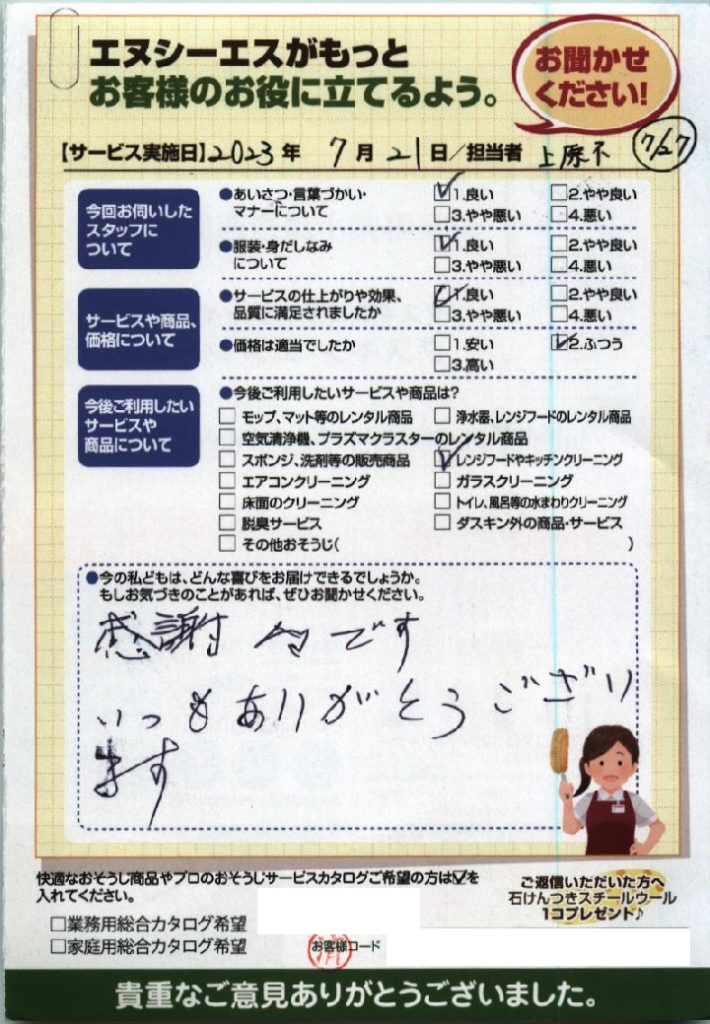 エヌシーエスがもっと
お客様のお役に立てるよう。
お聞かせ
ください!
【サービス実施日】2023年 7月 21日/担当者
7/27
今回お伺いした
スタッフに
ついて
●あいさつ・言葉づかい・
マナーについて
☑1.良い □2.やや良い
□3.やや悪い □4.悪い
●服装・身だしなみ
について
☑1.良い □2.やや良い
□3.やや悪い □4.悪い
サービスや商品、
価格について
●サービスの仕上がりや効果、
品質に満足されましたか
☑1.良い □2.やや良い
□3.やや悪い □4.悪い
●価格は適当でしたか
□1.安い ☑2.ふつう
□3.高い
今後ご利用したい
サービスや
商品について
●今後ご利用したいサービスや商品は?
□ モップ、マット等のレンタル商品 □ 浄水器、レンジフードのレンタル商品
□ 空気清浄機、プラズマクラスターのレンタル商品
□ スポンジ、洗剤等の販売商品 ☑ レンジフードやキッチンクリーニング
□ エアコンクリーニング □ ガラスクリーニング
□ 床面のクリーニング □ トイレ、風呂等の水まわりクリーニング
□ 脱臭サービス □ ダスキン外の商品・サービス
□ その他おそうじ( )
●今の私どもは、どんな喜びをお届けできるでしょうか。
もしお気づきのことがあれば、ぜひお聞かせください。
感謝々です
いつもありがとうござい
ます
快適なおそうじ商品やプロのおそうじサービスカタログご希望の方は☑を
入れてください。
□業務用総合カタログ希望
□家庭用総合カタログ希望
お客様コード
ご返信いただいた方へ
石けんつきスチールウール
1コプレゼント♪
貴重なご意見ありがとうございました。